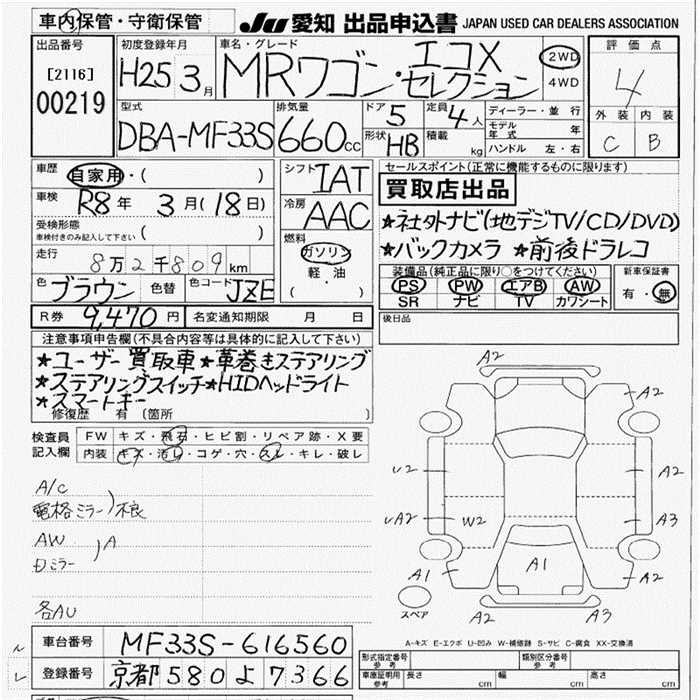 車内保管・守衛保管
JU 愛知 出品申込書 JAPAN USED CAR DEALERS ASSOCIATION
出品番号 [2116] 00219
初度登録年月 H25 3月
車名・グレード MRワゴン・エコX セレクション
2WD 4WD
評価点 4
外装 内装
C B
型式 DBA-MF33S
排気量 660cc
ドア 5
定員 4人
形状 HB
積載 kg
ディーラー・並行
モデル年式 年
ハンドル 左・右
車歴 自家用・( )
車検 R8年 3月(18日)
受検形態
車検付きのみ記入して下さい ( )
走行 8万2千809km
色 ブラウン 色替 色コード JZE
シフト IAT
冷房 AAC
燃料 ガソリン
軽・油
( ・ )
セールスポイント(正常に機能するものに限ります)
買取店出品
★社外ナビ(地デジTV/CD/DVD)
★バックカメラ ★前後ドラレコ
装備品(純正品に限り○をつけてください)
PS PW エアB AW
SR ナビ TV カワシート
新車保証書
有・無
R券 9,470円 名変通知期限 月 日
後日品
注意事項申告欄(不具合内容等は具体的に記入して下さい)
★ユーザー買取車★革巻きステアリング
★ステアリングスイッチ★HIDヘッドライト
★スマートキー
修復歴 有 (箇所 )
検査員記入欄
FW キズ・飛石・ヒビ割・リペア跡・X要
内装 キズ・汚レ・コゲ・穴・スレ・キレ・破レ
A/C
電格ミラー)不良
AW
Dミラー)A
各AU
A2
A2
U2 A2
UA2 W2 A3
A1 A1 A2
スペア A2 A3
A-キズ E-エクボ U-凹み W-補修跡 S-サビ C-腐食 XX-交換済
車台番号 MF33S-616560
登録番号 京都580よ7366
型式指定番号 参考 類別区分番号 参考
車庫証明用 参考 長さ cm 幅 cm 高さ cm